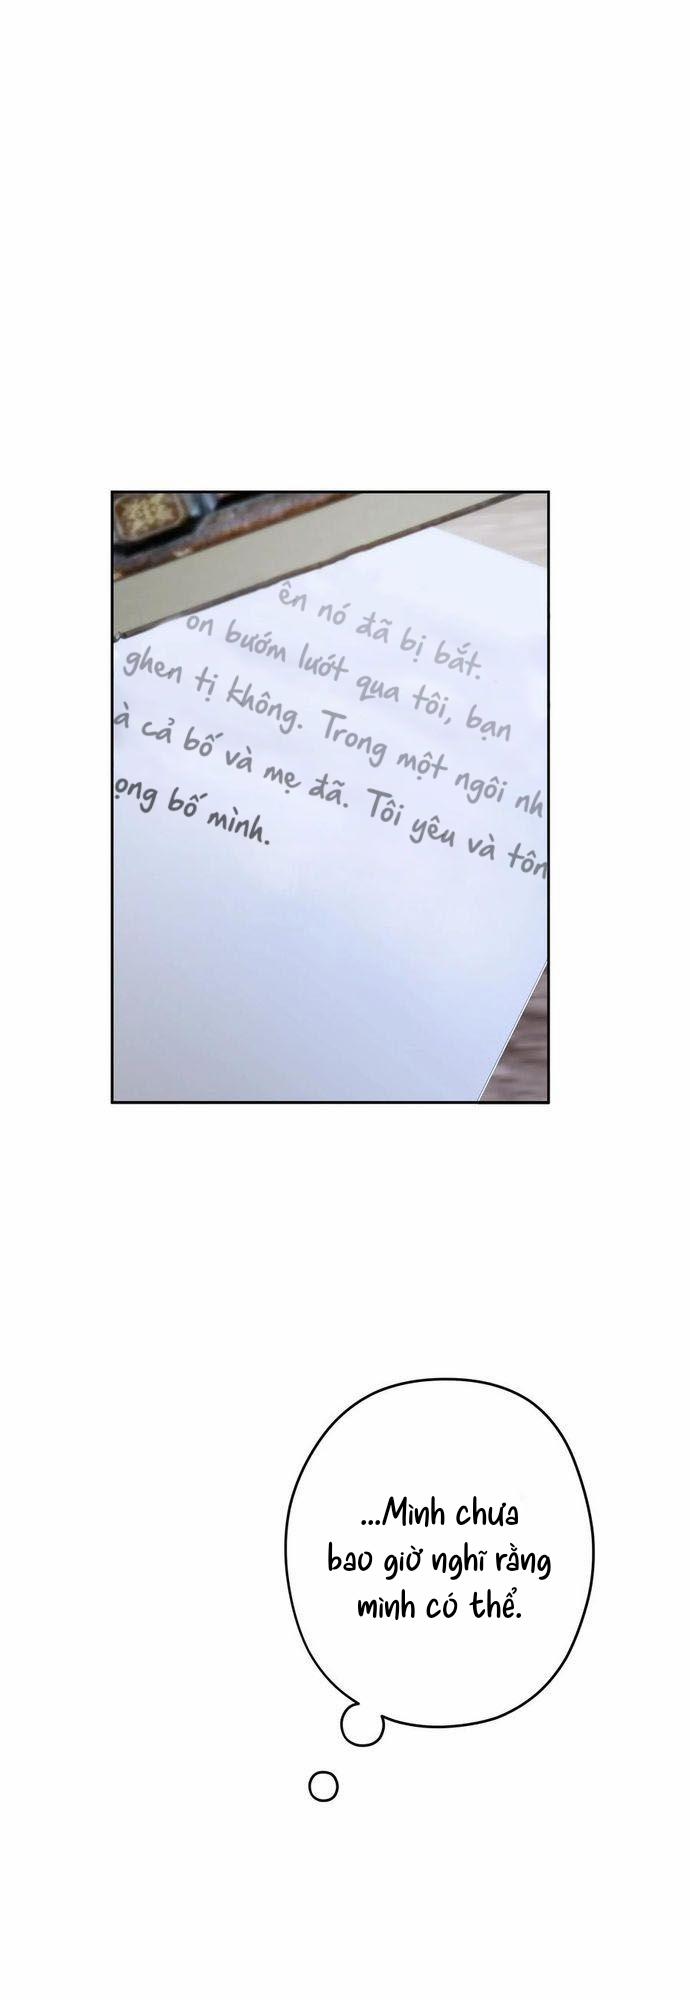 ên nó đã bị bắt.
on bướm lướt qua tôi, bạn
ghen tị không. Trong một ngôi nh
à cả bố và mẹ đã. Tôi yêu và tôn
ọng bố mình.
...Mình chưa
bao giờ nghĩ rằng
mình có thể.